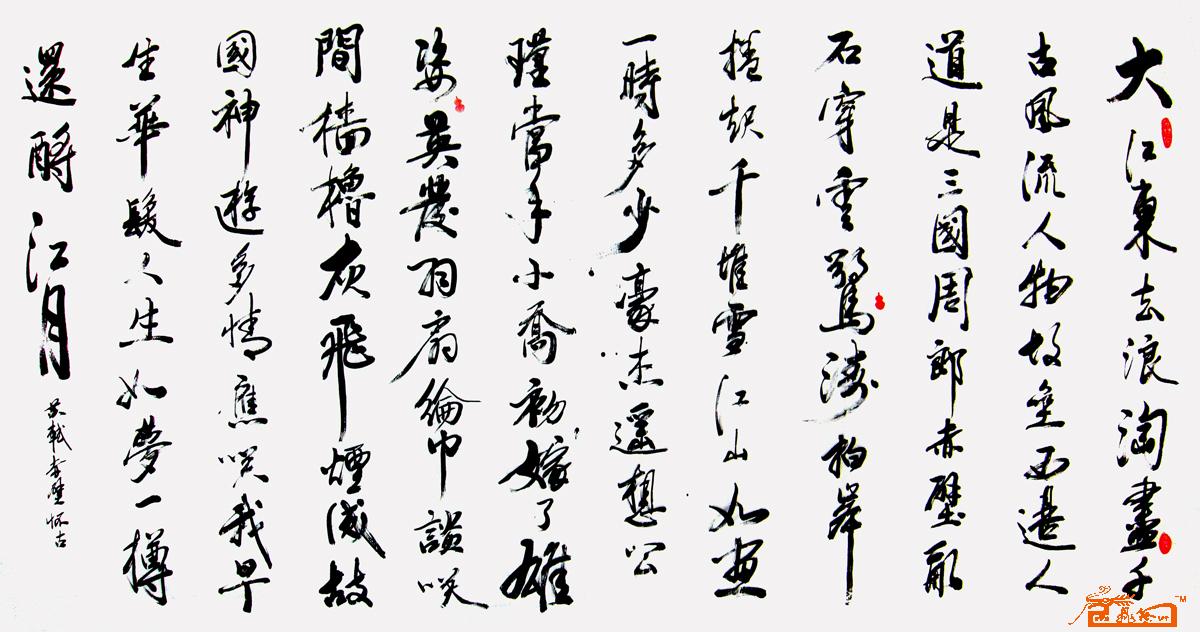 大江東去浪淘盡千
古風流人物故壘西邊人
道是三國周郎赤壁亂
石穿雲驚濤拍岸
捲起千堆雪江山如畫
一時多少豪杰遥想公
瑾當年小喬初嫁了雄
姿英發羽扇綸巾談咲
間檣櫓灰飛煙滅故
國神遊多情應咲我早
生華髮人生如夢一樽
還酹江月
蘇軾赤壁怀古